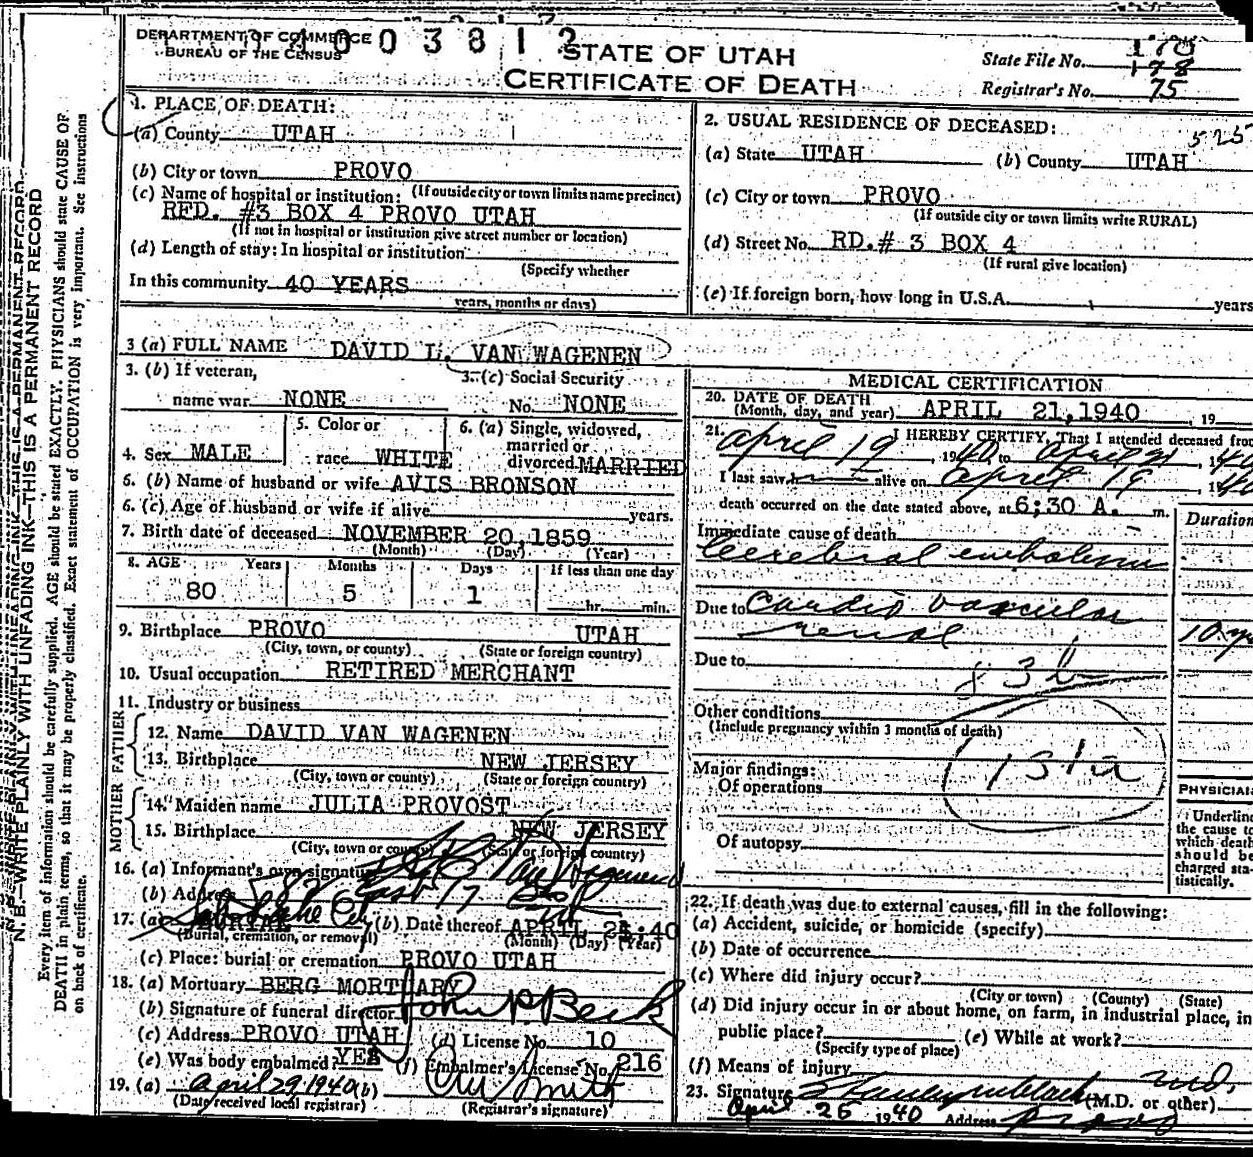 DEPARTMENT OF COMMERCE
BUREAU OF THE CENSUS
STATE OF UTAH
CERTIFICATE OF DEATH
State File No. 178
Registrar's No. 75
1. PLACE OF DEATH:
(a) County UTAH
(b) City or town PROVO
(If outside city or town limits name precinct)
(c) Name of hospital or institution:
RFD. #3 BOX 4 PROVO UTAH
(If not in hospital or institution give street number or location)
(d) Length of stay: In hospital or institution
(Specify whether
In this community 40 YEARS
years, months or days)
2. USUAL RESIDENCE OF DECEASED:
525
(a) State UTAH (b) County UTAH
(c) City or town PROVO
(If outside city or town limits write RURAL)
(d) Street No. RD.# 3 BOX 4
(If rural give location)
(e) If foreign born, how long in U.S.A. years
3 (a) FULL NAME DAVID L. VAN WAGENEN
3. (b) If veteran,
name war NONE
3. (c) Social Security
No. NONE
4. Sex MALE
5. Color or
race WHITE
6. (a) Single, widowed,
married or
divorced MARRIED
6. (b) Name of husband or wife AVIS BRONSON
6. (c) Age of husband or wife if alive years.
7. Birth date of deceased NOVEMBER 20, 1859
(Month) (Day) (Year)
8. AGE Years Months Days If less than one day
80 5 1 hr. min.
9. Birthplace PROVO UTAH
(City, town, or county) (State or foreign country)
10. Usual occupation RETIRED MERCHANT
11. Industry or business
FATHER
12. Name DAVID VAN WAGENEN
13. Birthplace NEW JERSEY
(City, town or county) (State or foreign country)
MOTHER
14. Maiden name JULIA PROVOST
15. Birthplace NEW JERSEY
(City, town or county) (State or foreign country)
16. (a) Informant's own signature Van Wagenen
(b) Address East 17
Salt Lake City
17. (a) BURIAL (b) Date thereof APRIL 40
(Burial, cremation, or removal) (Month) (Day) (Year)
(c) Place: burial or cremation PROVO UTAH
18. (a) Mortuary BERG MORTUARY
(b) Signature of funeral director John P. Beck
(c) Address PROVO UTAH (d) License No. 10
(e) Was body embalmed? YES (f) Embalmer's License No. 216
19. (a) April 29, 1940 (b) Smith
(Date received local registrar) (Registrar's signature)
MEDICAL CERTIFICATION
20. DATE OF DEATH
(Month, day, and year) APRIL 21, 1940, 19
21. I HEREBY CERTIFY, That I attended deceased from
April 19, 1940, to April 21, 1940
I last saw h alive on April 19, 1940
death occurred on the date stated above, at 6:30 A. m.
Duration
Immediate cause of death
Cerebral embolism
Due to Cardio vascular
renal
10 yr
Due to
83b
Other conditions
(Include pregnancy within 3 months of death)
131a
Major findings:
Of operations
Of autopsy
PHYSICIAN
Underline
the cause to
which death
should be
charged sta-
tistically.
22. If death was due to external causes, fill in the following:
(a) Accident, suicide, or homicide (specify)
(b) Date of occurrence
(c) Where did injury occur?
(City or town) (County) (State)
(d) Did injury occur in or about home, on farm, in industrial place, in
public place? (e) While at work?
(Specify type of place)
(f) Means of injury
23. Signature M.D. (M.D. or other)
April 26 1940 Address Provo
N. B.—WRITE PLAINLY WITH UNFADING INK—THIS IS A PERMANENT RECORD
Every item of information should be carefully supplied. AGE should be stated EXACTLY. PHYSICIANS should state CAUSE OF
DEATH in plain terms, so that it may be properly classified. Exact statement of OCCUPATION is very important. See instructions
on back of certificate.